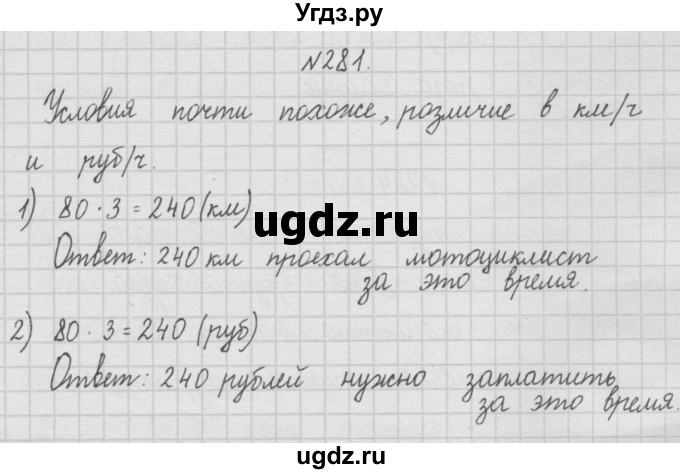 Угдз.ру
№281.
Условия почти похоже, различие в км/ч
и руб/ч.
1) 80 · 3 = 240 (км)
ugdz.ru
Ответ: 240 км проехал мотоциклист
за это время.
2) 80 · 3 = 240 (руб)
Ответ: 240 рублей нужно заплатить
за это время.
ugdz.ru